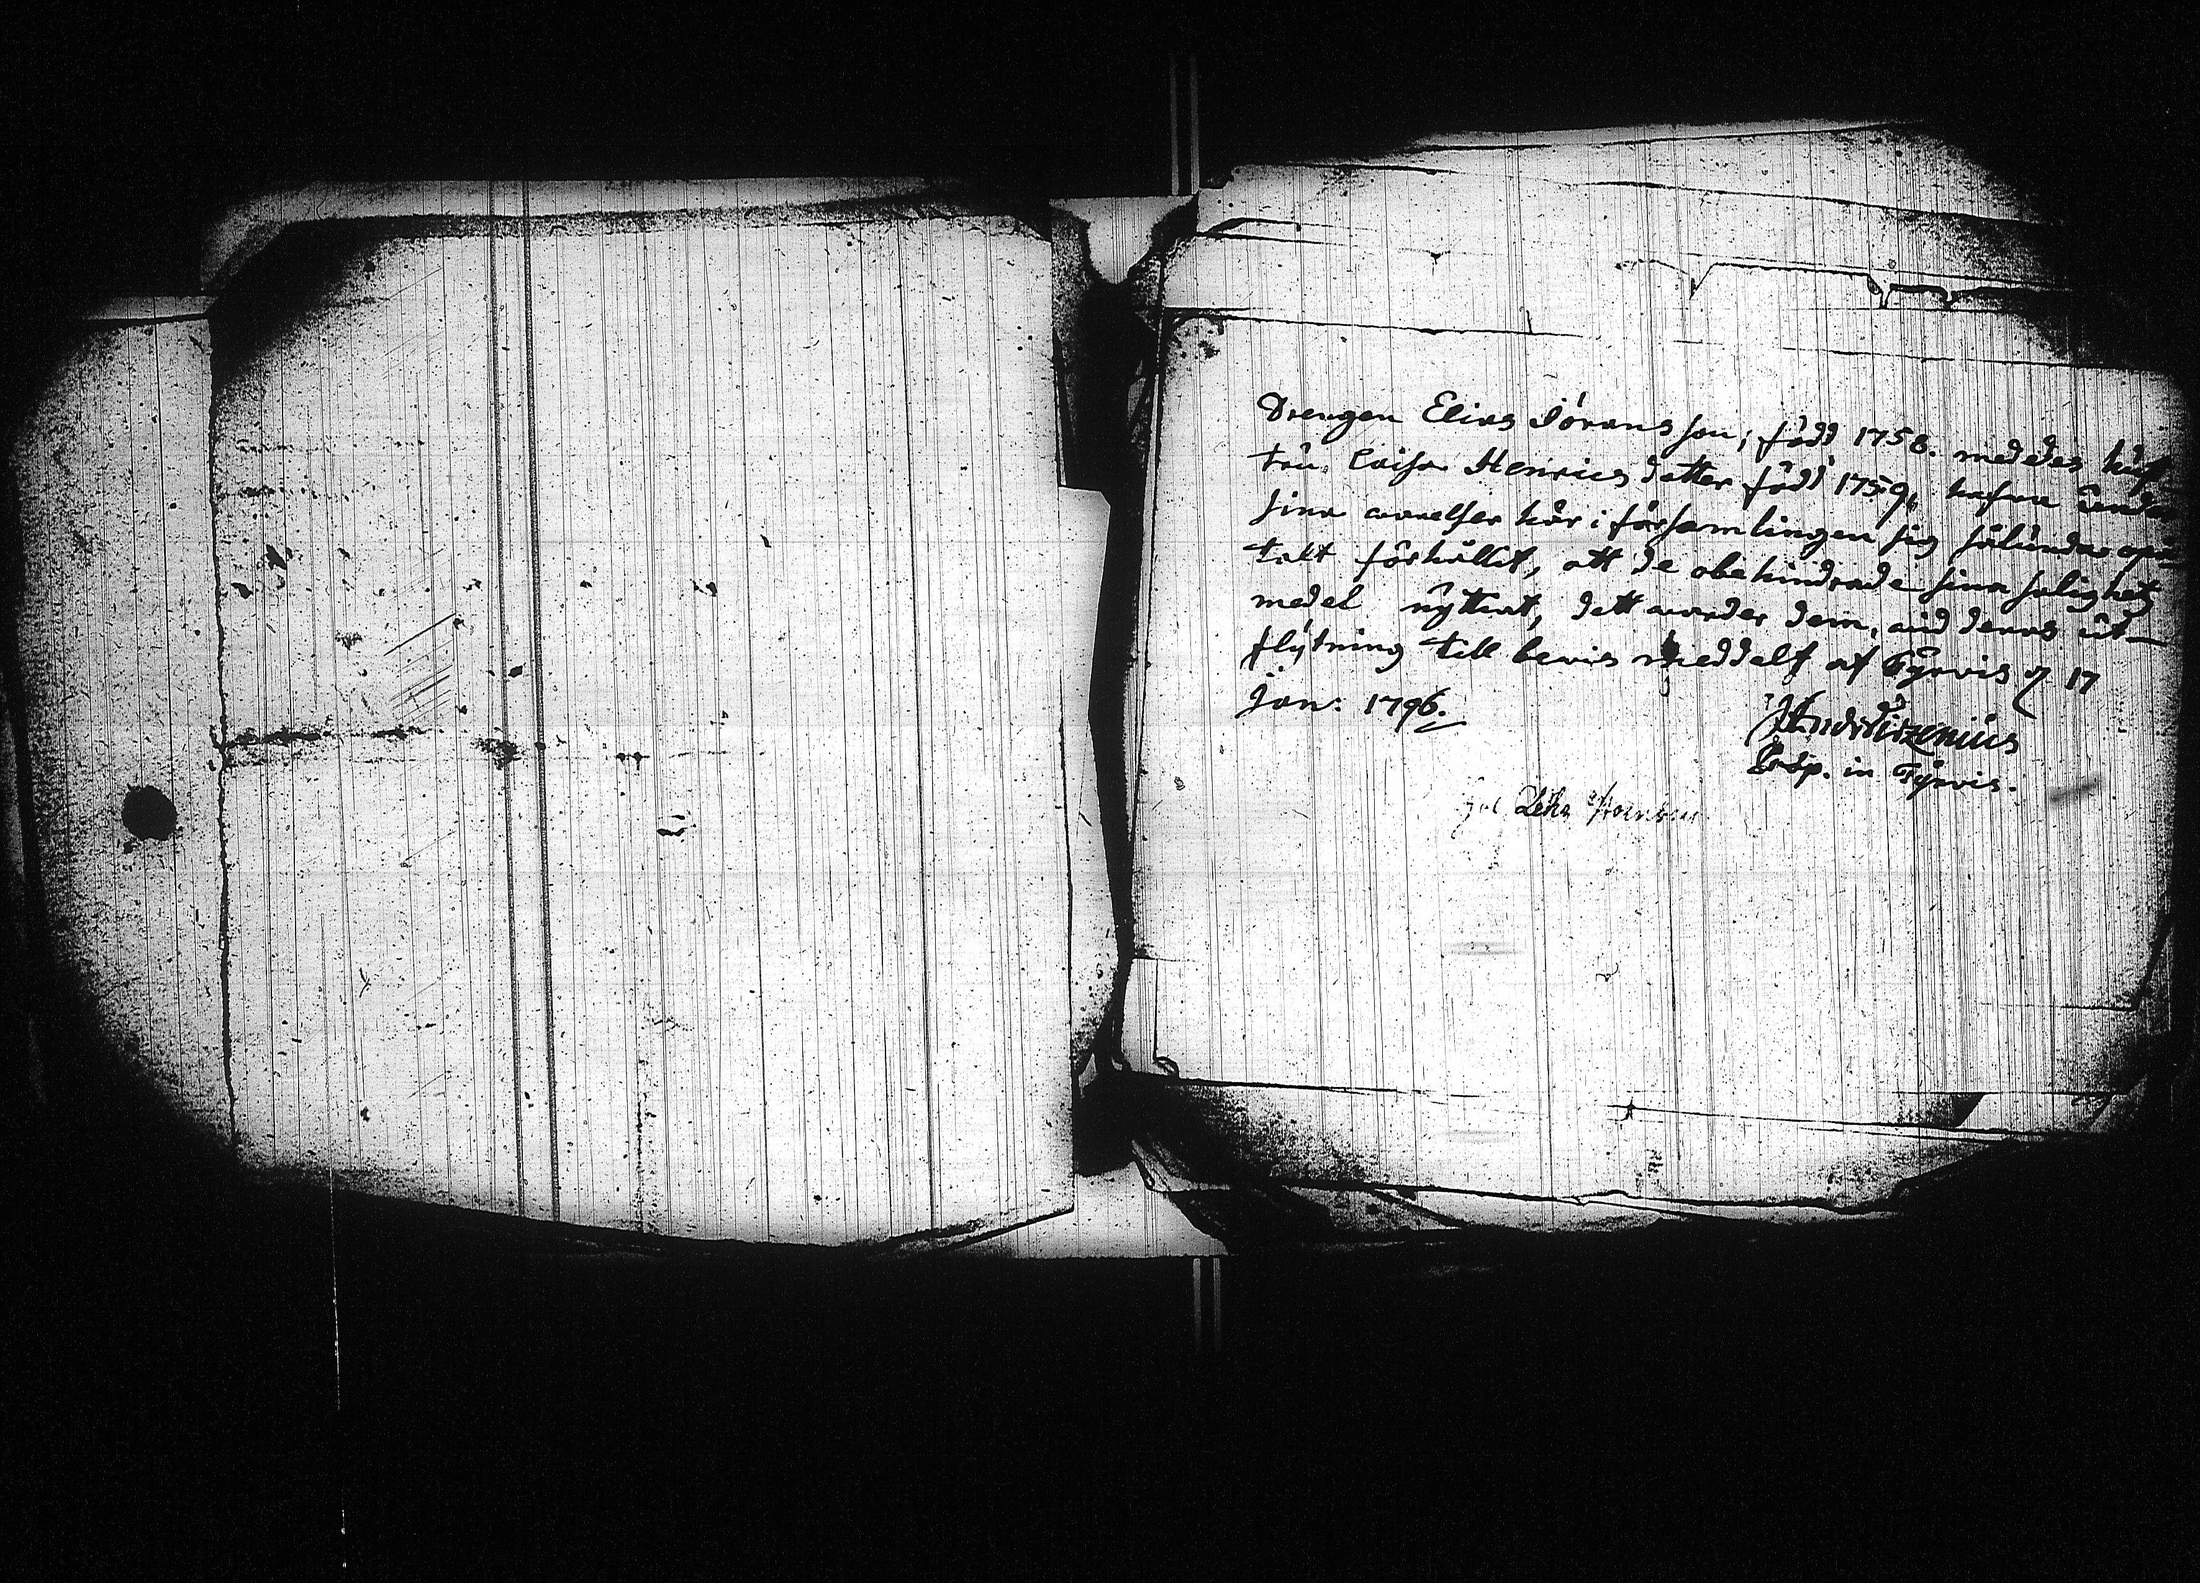 Drengen Elias Jöransson, född 1758. med des hust
tru Caisa Henricsdotter född 1759, hafva under
sina varelser här i församlingen sig sålunda opå
talt förhållit, att de obehindrade sina salighets
medel nyttiat, dett varder dem, vid deras ut-
flytning till bevis meddelt af Tyrvis d. 17
Jan: 1796.
Præp. in Tyrvis.